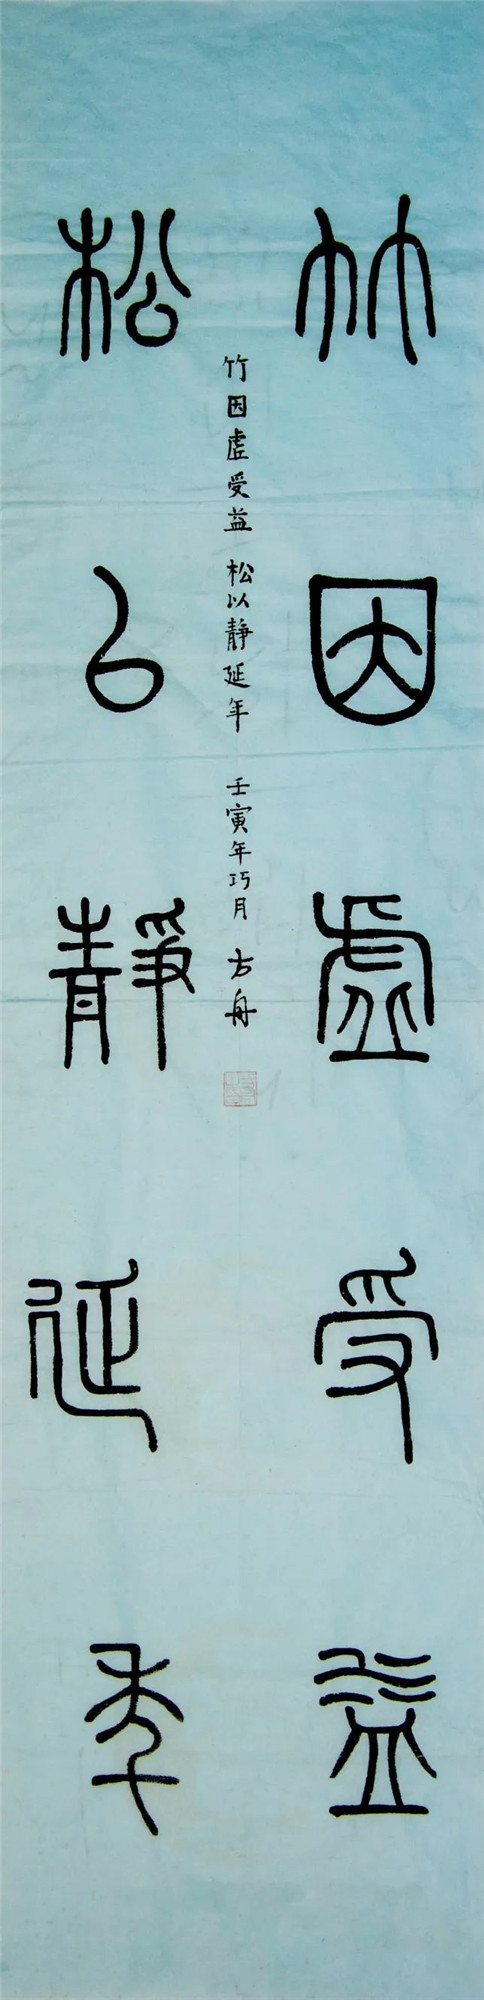 竹因虚受益
竹因虚受益 松以静延年 壬寅年巧月 方舟
松以静延年